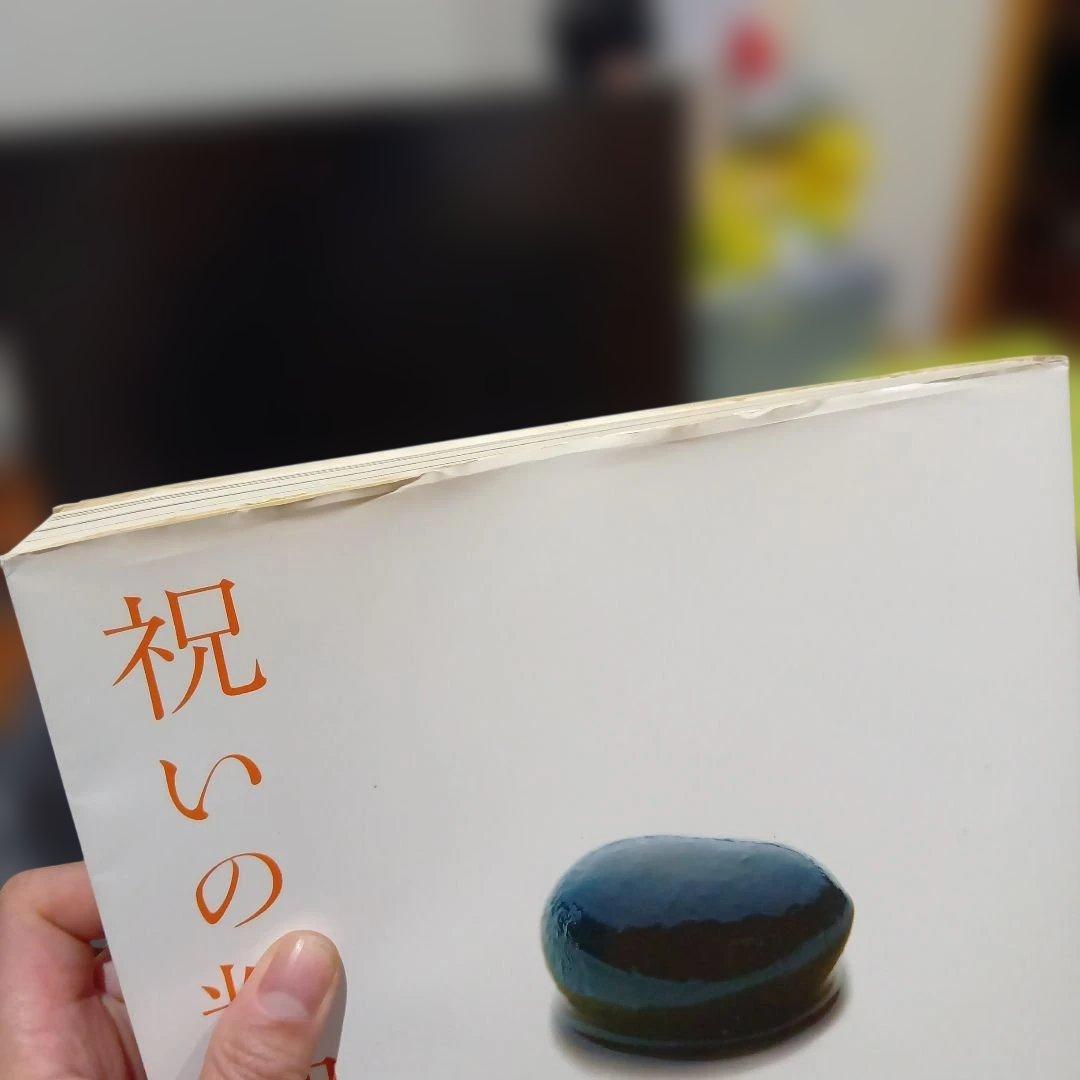 祝いの